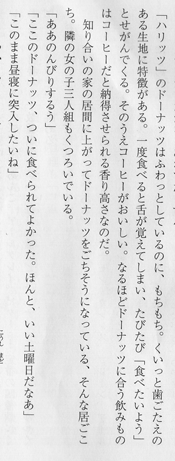 「ハリッツ」のドーナッツはふわっとしているのに、もちもち。くいっと歯ごたえの
ある生地に特徴がある。一度食べると舌が覚えてしまい、たびたび「食べたいよう」
とせがんでくる。そのうえコーヒーがおいしい。なるほどドーナッツに合う飲みもの
はコーヒーだと納得させられる香り高さなのだ。
知り合いの家の居間に上がってドーナッツをごちそうになっている、そんな居ごこ
ち。隣の女の子三人組もくつろいでいる。
「ああのんびりするう」
「ここのドーナッツ、ついに食べられてよかった。ほんと、いい土曜日だなあ」
「このまま昼寝に突入したいね」